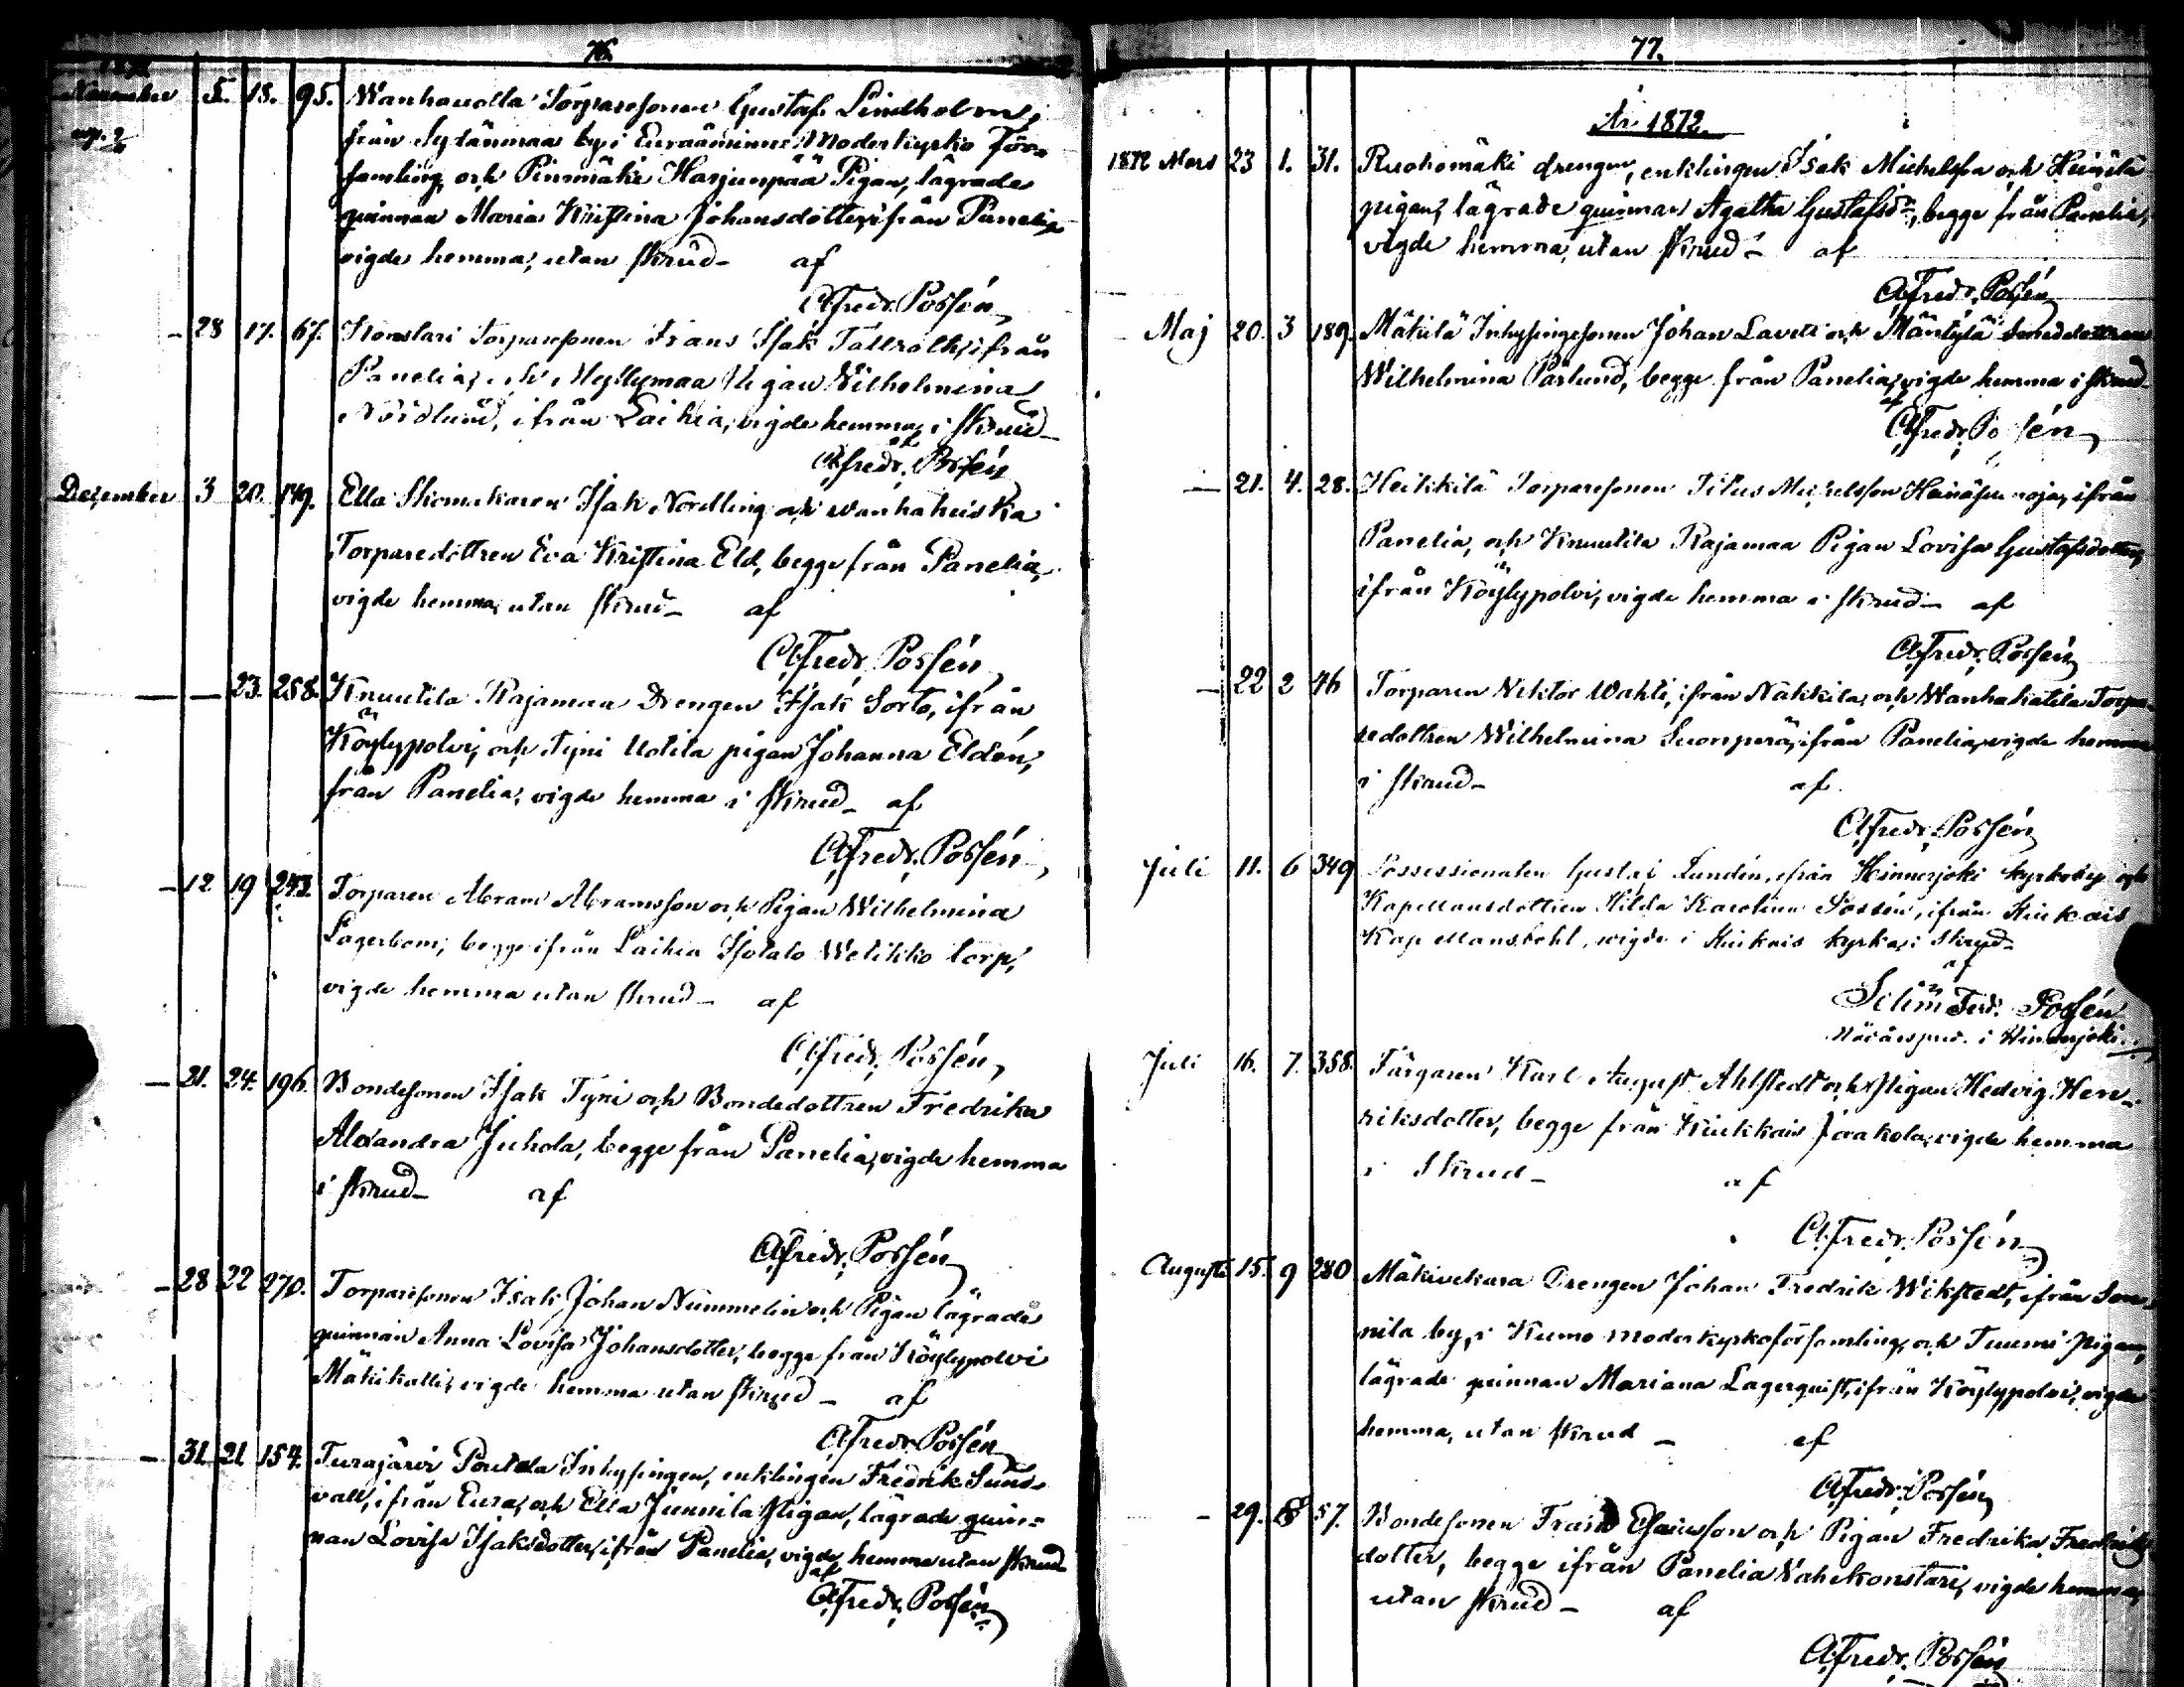 76.
1871
November 5. 18. 95. Wanhauolla Torparesonen Gustaf Lindholm,
från Sydänmaa by i Euraåminne Moderkyrko för=
samling, och Pinomäki Harjunpää Pigan, lägrade
quinnan Maria Kristina Johansdotter, ifrån Panelia,
vigde hemma, utan skrud – af
Alfredr. Possén
– 28 17. 67. Konstari Torparesonen Frans Isak Tallroth, ifrån
Panelia, och Myllymaa Pigan Wilhelmina
Nordlund, ifrån Laihia, vigde hemma, i skrud –
af
Alfredr. Possén
December 3 20. 149. Ella Skomakaren Isak Nordling och Wanhaheiska
Torparedottren Eva Kristina Eld, begge från Panelia,
vigde hemma, utan skrud – af
Alfredr. Possén
– – 23. 258. Knuutila Rajamaa Drengen Isak Sorto, ifrån
Köylypolvi, och Tyni Uotila pigan Johanna Eldén,
från Panelia, vigde hemma i skrud – af
Alfredr. Possén
– 12 19 243. Torparen Abram Abramsson och Pigan Wilhelmina
Lagerbom, begge ifrån Laihia Isotalo Welikko torp,
vigde hemma utan skrud – af
Alfredr. Possén
– 21. 24. 196. Bondesonen Isak Tyni och Bondedottren Fredrika
Alexandra Juhola, begge från Panelia, vigde hemma
i skrud – af
Alfredr. Possén
– 28 22 270. Torparesonen Isak Johan Nummelin och Pigan lägrade
quinnan Anna Lovisa Johansdotter, begge från Köylypolvi
Mäkikalli, vigde hemma utan skrud – af
Alfredr. Possén
– 31. 21. 154. Turajärvi Poutala Inhysingen, enklingen Fredrik Sund=
vall, ifrån Eura, och Ella Junnila Pigan, lägrade quin=
nan Lovisa Isaksdotter, ifrån Panelia, vigde hemma utan skrud
af
Alfredr. Possén
77.
År 1872.
1872 Mars 23 1. 31. Ruohomäki drengen, enklingen Isak Michelsson och Heinilä
pigan, lägrade quinnan Agatha Gustafsdr, begge från Panelia,
vigde hemma, utan skrud – af
Alfredr. Possén
Maj 20. 3 189. Mäkilä Inhysingesonen Johan Lavett och Mäntylä
Wilhelmina Pärlund, begge från Panelia, vigde hemma i skrud –
af
Alfredr. Possén
– 21. 4. 28. Heikkilä Torparesonen Titus Michelsson ifrån
Panelia, och Knuutila Rajamaa Pigan Lovisa Gustafsdotter,
ifrån Köylypolvi, vigde hemma i skrud – af
Alfredr. Possén
– 22 2 46 Torparen Viktor Wahti, ifrån Nakkila, och Wanhakatila Torpa=
redottren Wilhelmina Suonperä, ifrån Panelia, vigde hemma
i skrud – af
Alfredr. Possén
Juli 11. 6 349 Possessionaten Gustaf Lundén, ifrån Hinnerjoki kyrkoby och
Kapellansdottren Hilda Karolina Possén, ifrån Kiukais
Kapellansbohl, vigde i Kiukais kyrka, i skrud –
af
Selim Ferd. Possén
i Hinnerjoki.
Juli 16. 7. 358. Färgaren Karl August Ahlstedt och Pigan Hedvig Hen=
riksdotter, begge från Kiukkais Jaakola, vigde hemma
i skrud – af
Alfredr. Possén
Augusti 15. 9 280 Mäkivekara Drengen Johan Fredrik Wikstedt, ifrån Son=
nila by, i Kumo moderkyrkoförsamling, och Tuomi Pigan,
lägrade quinnan Mariana Lagerquist, ifrån Köylypolvi, vigde
hemma, utan skrud – af
Alfredr. Possén
– 29. 8 57. Bondesonen Frans Esaiasson och Pigan Fredrika Fredriks
dotter, begge ifrån Panelia Vähä Konstari, vigde hemma,
utan skrud – af
Alfredr. Possén